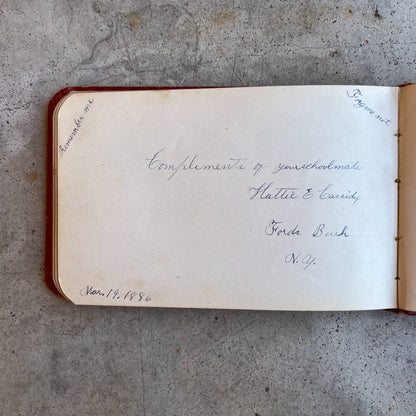 Remember me
Forget me not
Compliments of your schoolmate
Hattie E Cassidy
Fords Bush
N.Y.
Mar. 19, 1886